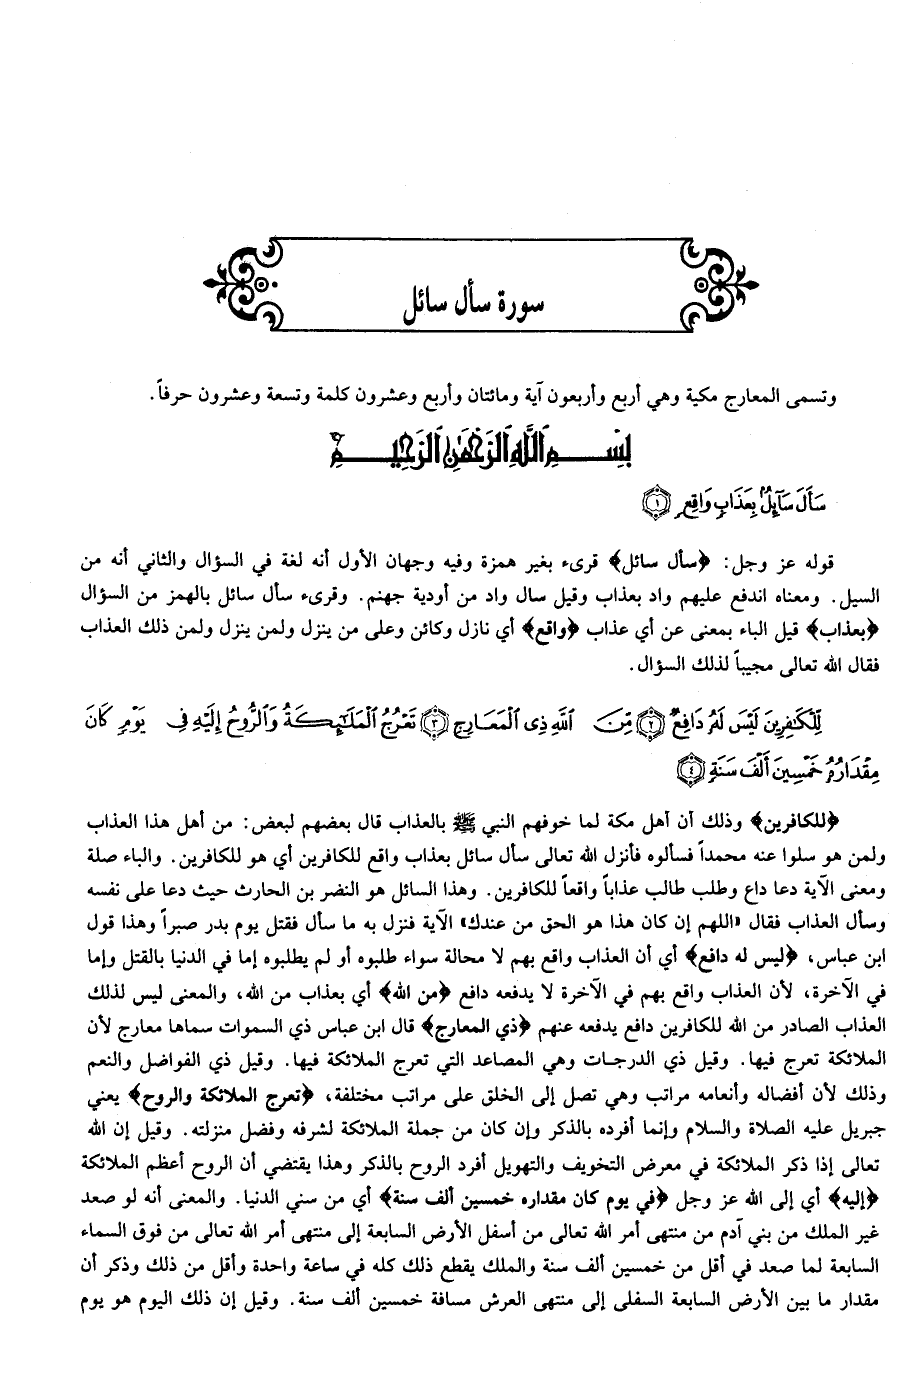 سورة سأل سائل
وتسمى المعارج مكية وهي أربع وأربعون آية ومائتان وأربع وعشرون كلمة وتسعة وعشرون حرفاً.
بِسْمِ اللَّهِ الرَّحْمَٰنِ الرَّحِيمِ
سَأَلَ سَآئِلٌۢ بِعَذَابٍ وَاقِعٍ ﴿١﴾
قوله عز وجل: ﴿سأل سائل﴾ قرىء بغير همزة وفيه وجهان الأول أنه لغة في السؤال والثاني أنه من
السيل. ومعناه اندفع عليهم واد بعذاب وقيل سال واد من أودية جهنم. وقرىء سأل سائل بالهمز من السؤال
﴿بعذاب﴾ قيل الباء بمعنى عن أي عذاب ﴿واقع﴾ أي نازل وكائن وعلى من ينزل ولمن ينزل ولمن ذلك العذاب
فقال الله تعالى مجيباً لذلك السؤال.
لِّلْكَٰفِرِينَ لَيْسَ لَهُۥ دَافِعٌ ﴿٢﴾ مِّنَ ٱللَّهِ ذِى ٱلْمَعَارِجِ ﴿٣﴾ تَعْرُجُ ٱلْمَلَٰٓئِكَةُ وَٱلرُّوحُ إِلَيْهِ فِى يَوْمٍ كَانَ
مِقْدَارُهُۥ خَمْسِينَ أَلْفَ سَنَةٍ ﴿٤﴾
﴿للكافرين﴾ وذلك أن أهل مكة لما خوفهم النبي ﷺ بالعذاب قال بعضهم لبعض: من أهل هذا العذاب
ولمن هو سلوا عنه محمداً فسألوه فأنزل الله تعالى سأل سائل بعذاب واقع للكافرين أي هو للكافرين. والباء صلة
ومعنى الآية دعا داع وطلب طالب عذاباً واقعاً للكافرين. وهذا السائل هو النضر بن الحارث حيث دعا على نفسه
وسأل العذاب فقال «اللهم إن كان هذا هو الحق من عندك» الآية فنزل به ما سأل فقتل يوم بدر صبراً وهذا قول
ابن عباس، ﴿ليس له دافع﴾ أي أن العذاب واقع بهم لا محالة سواء طلبوه أو لم يطلبوه إما في الدنيا بالقتل وإما
في الآخرة، لأن العذاب واقع بهم في الآخرة لا يدفعه دافع ﴿من الله﴾ أي بعذاب من الله، والمعنى ليس لذلك
العذاب الصادر من الله للكافرين دافع يدفعه عنهم ﴿ذي المعارج﴾ قال ابن عباس ذي السموات سماها معارج لأن
الملائكة تعرج فيها. وقيل ذي الدرجات وهي المصاعد التي تعرج الملائكة فيها. وقيل ذي الفواضل والنعم
وذلك لأن أفضاله وأنعامه مراتب وهي تصل إلى الخلق على مراتب مختلفة، ﴿تعرج الملائكة والروح﴾ يعني
جبريل عليه الصلاة والسلام وإنما أفرده بالذكر وإن كان من جملة الملائكة لشرفه وفضل منزلته. وقيل إن الله
تعالى إذا ذكر الملائكة في معرض التخويف والتهويل أفرد الروح بالذكر وهذا يقتضي أن الروح أعظم الملائكة
﴿إليه﴾ أي إلى الله عز وجل ﴿في يوم كان مقداره خمسين ألف سنة﴾ أي من سني الدنيا. والمعنى أنه لو صعد
غير الملك من بني آدم من منتهى أمر الله تعالى من أسفل الأرض السابعة إلى منتهى أمر الله تعالى من فوق السماء
السابعة لما صعد في أقل من خمسين ألف سنة والملك يقطع ذلك كله في ساعة واحدة وأقل من ذلك وذكر أن
مقدار ما بين الأرض السابعة السفلى إلى منتهى العرش مسافة خمسين ألف سنة. وقيل إن ذلك اليوم هو يوم